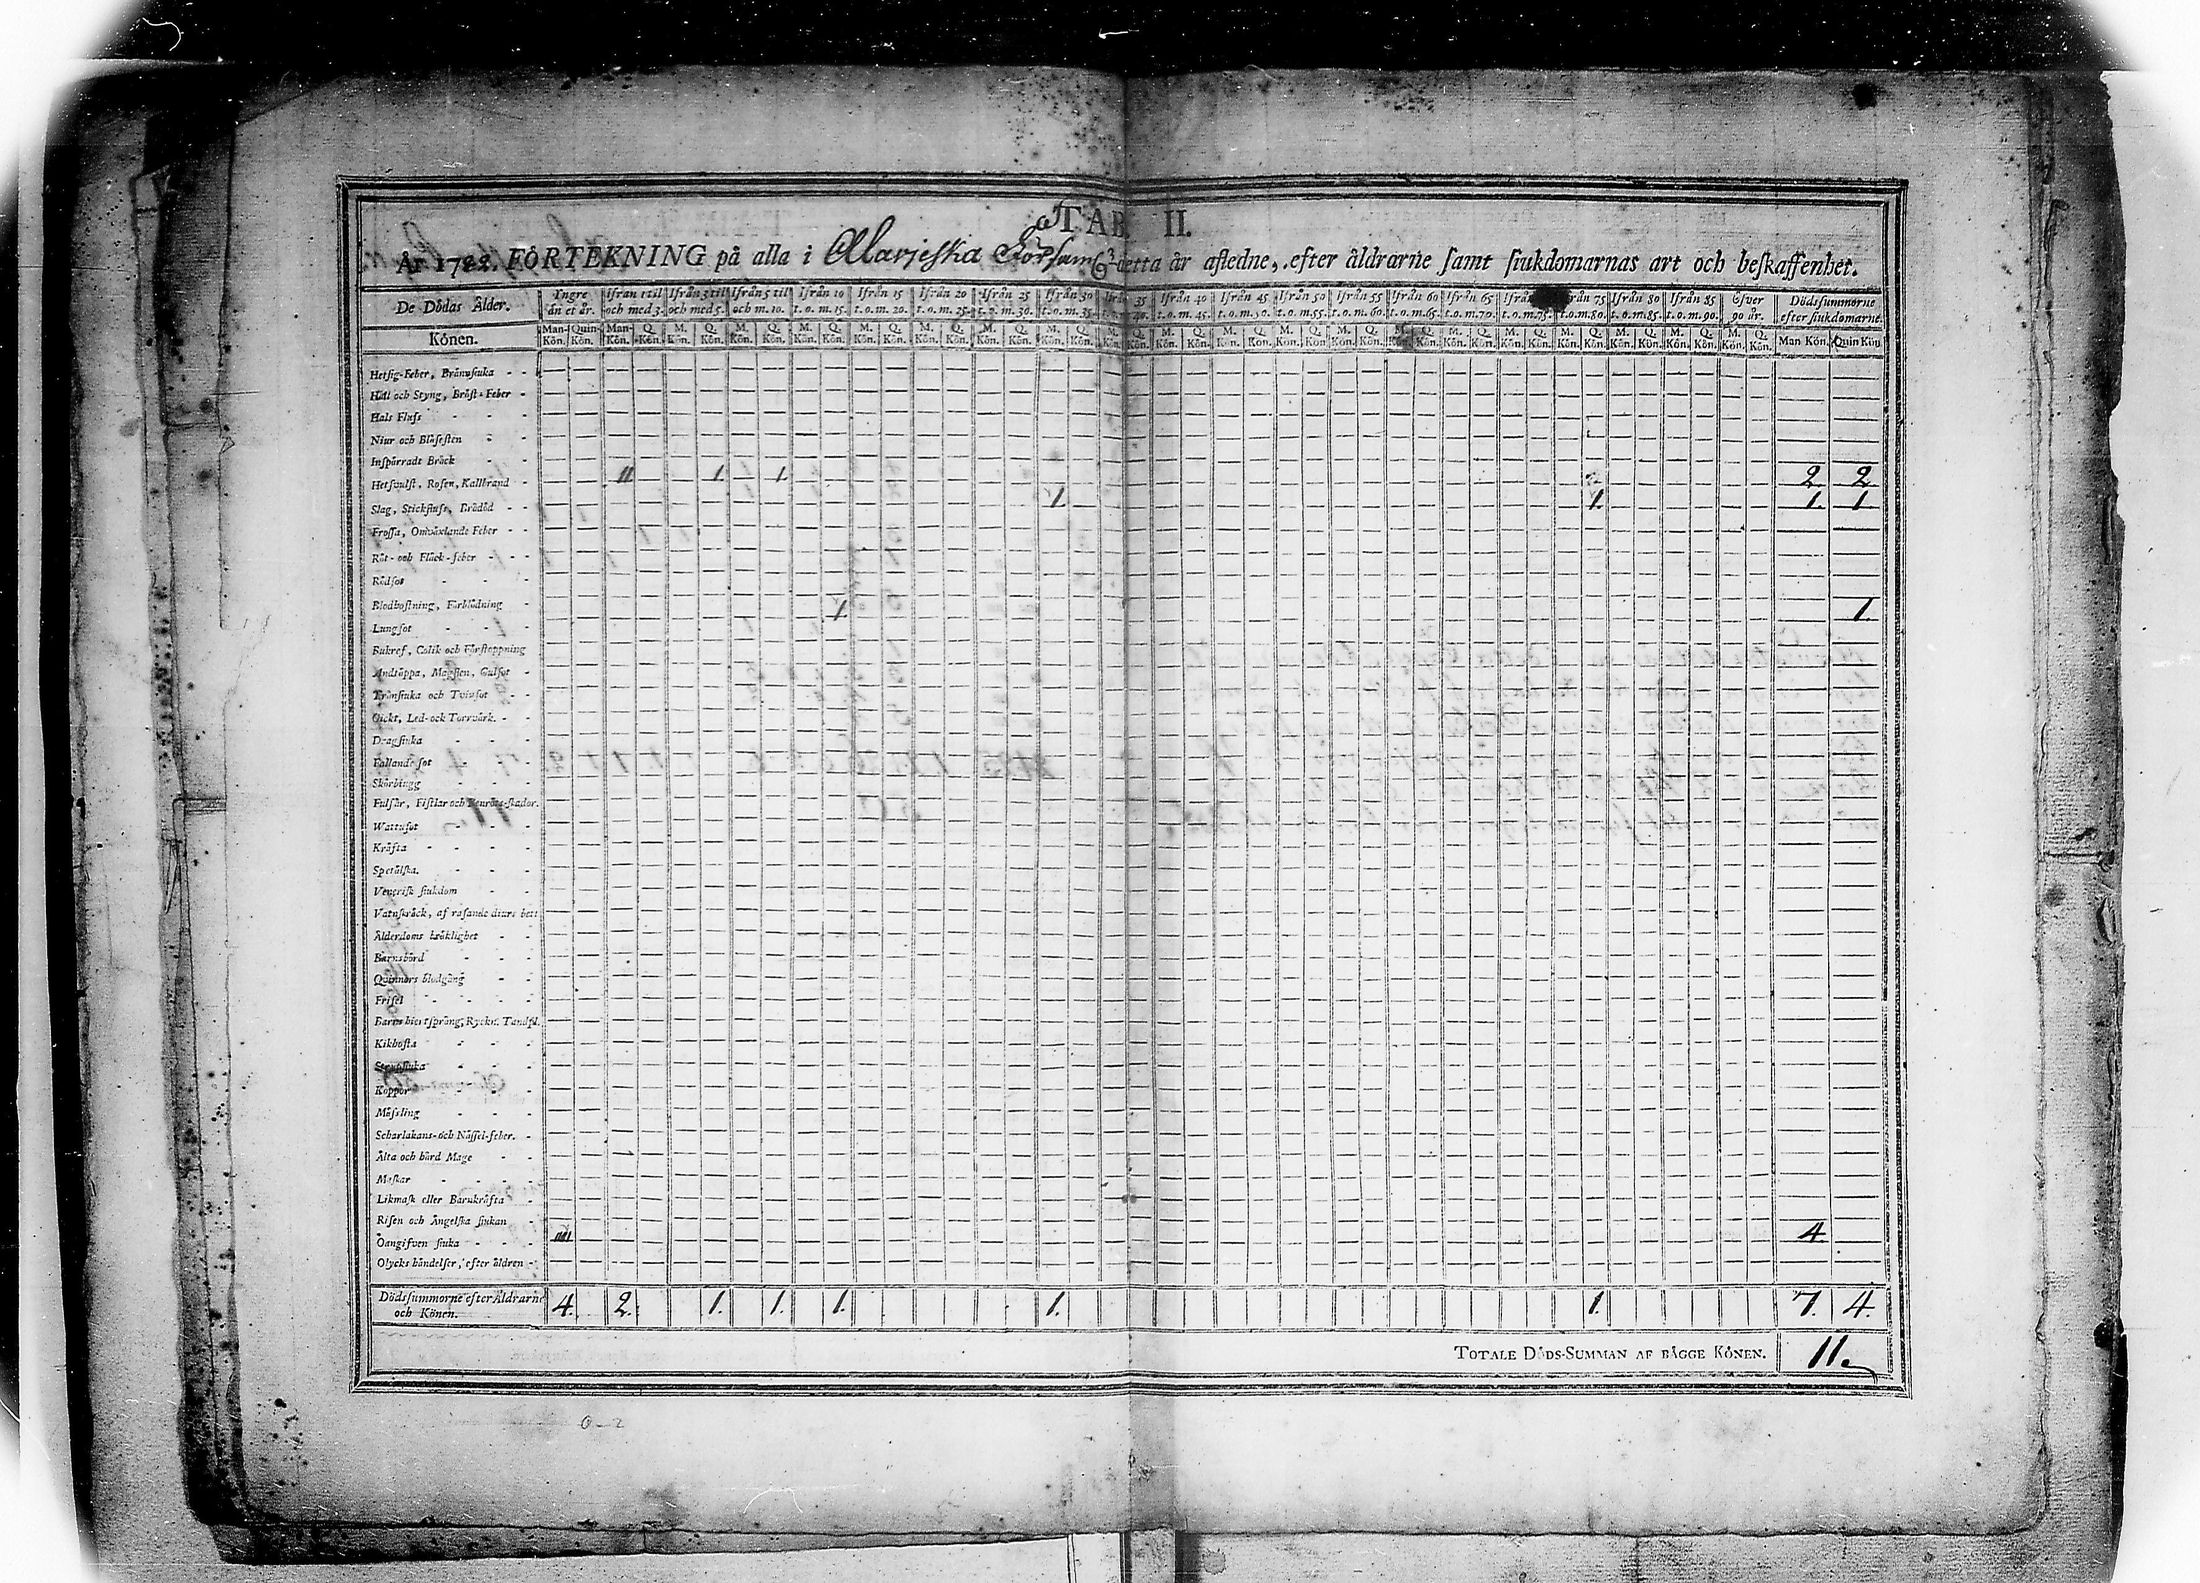 TAB. II.
År 1782. FÖRTEKNING på alla i Mariæska Församl. detta år afledne, efter åldrarne samt siukdomarnas art och beskaffenhet.
De Dödas Ålder. Yngre än et år. Ifrån 1 til och med 3. Ifrån 3 til och med 5. Ifrån 5 til och m. 10. Ifrån 10 t. o. m. 15. Ifrån 15 t. o. m. 20. Ifrån 20 t. o. m. 25. Ifrån 25 t. o. m. 30. Ifrån 30 t. o. m. 35. 35 40. Ifrån 40 t. o. m. 45. Ifrån 45 t. o. m. 50. Ifrån 50 t. o. m. 55. Ifrån 55 t. o. m. 60. Ifrån 60 t. o. m. 65. Ifrån 65 t. o. m. 70. Ifrån t. o. m. 75. 75 t. o. m. 80. Ifrån 80 t. o. m. 85. Ifrån 85 t. o. m. 90. Öfver 90 år. Dödssummorne efter siukdomarne.
Könen. Man-Kön. Quin-Kön. Man-Kön. Q. Kön. M. Kön. Q. Kön. M. Kön. Q. Kön. M. Kön. Q. Kön. M. Kön. Q. Kön. M. Kön. Q. Kön. M. Kön. Q. Kön. M. Kön. Q. Kön. Kön. Q. Kön. M. Kön. Q. Kön. M. Kön. Q. Kön. M. Kön. Q. Kön. M. Kön. Q. Kön. M. Kön. Q. Kön. M. Kön. Q. Kön. M. Kön. Q. Kön. M. Kön. Q. Kön. M. Kön. Q. Kön. M. Kön. Q. Kön. M. Kön. Q. Kön. Man Kön. Quin Kön
Hetsig-Feber, Brännsiuka
Håll och Styng, Bröst-Feber
Hals Fluss
Niur och Blåsesten
Inspärradt Bråck
Hetsvulst, Rosen, Kallbrand 11 1. 1. 2 2
Slag, Stickfluss, Brådöd 1. 1. 1. 1.
Frossa, Omväxlande Feber
Röt- och Fläck-feber
Rödsot
Blodhostning, Förblödning 1. 1.
Lungsot
Bukref, Colik och Förstoppning
Andtäppa, Magsten, Gulsot
Trånsiuka och Tvinsot
Gickt, Led- och Torrvärk.
Dragsiuka
Fallandesot
Skörbiugg
Fulsår, Fistlar och Benröta-skador.
Wattusot
Kräfta
Spetälska.
Venerisk siukdom
Vatuskräck, af rasande diurs bett
Ålderdoms bräklighet
Barnsbörd
Quinnors blodgång
Frisel
Barns hiertsprång, Ryckn. Tandsl.
Kikhosta
Strupsiuka
Koppor
Mässling
Scharlakans- och Nässel-feber.
Älta och hård Mage
Maskar
Likmask eller Barnkräfta
Risen och Ängelska siukan
Oangifven siuka 1111 4.
Olycks händelser, efter åldren
Dödssummorne efter Åldrarne och Könen. 4. 2. 1. 1. 1. 1. 1. 7. 4.
TOTALE DÖDS-SUMMAN AF BÄGGE KÖNEN. 11.